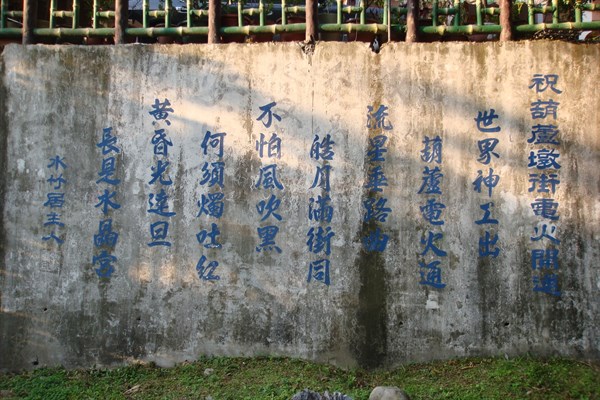 祝葫蘆墩街電火開通
世界神工出
葫蘆電火通
流星垂路曲
皓月滿街同
不怕風吹黑
何須燭吐紅
黃昏光達旦
長是水晶宮
水竹居主人